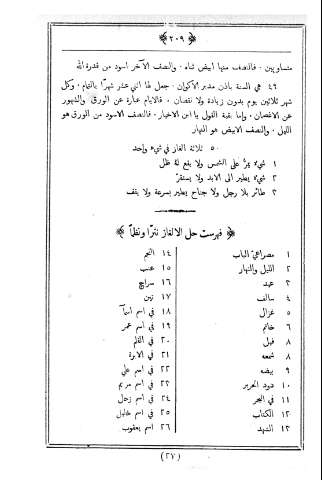 ﴿ ٢٠٩ ﴾
متساويين . فالنصف منها ابيض ثناه . والنصف الآخر اسود من قدرة الله
٤٦ هي السنة باذن مدبر الاكوان . جعل لها اثني عشر شهرًا بالتمام . وكل
شهر ثلاثين يوم بدون زيادة ولا نقصان . فالايام عبارة عن الورق والشهور
عن الاغصان . واما بقية القول يا ابن الاخيار . فالنصف الاسود من الورق هو
الليل . والنصف الابيض هو النهار
٥٠ ثلاثة الغاز في شيء واحد
١ شيء يمرُّ على الشمس ولا يقع له ظل
٢ شيء يطير الى الابد ولا يستقرّ
٣ طائر بلا رجل ولا جناح يطير بسرعة ولا يقف
﴿ فهرست حل الالغاز نثرًا ونظمًا ﴾
١ مصراعي الباب
٢ الليل والنهار
٣ عيد
٤ سالف
٥ غزال
٦ خاتم
٧ فيل
٨ شمعه
٩ بيضه
١٠ دود الحرير
١١ في البحر
١٢ الكتاب
١٣ الشهد
١٤ النجم
١٥ عنب
١٦ سراج
١٧ تين
١٨ في اسم اسمآ
١٩ في اسم عمر
٢٠ في القلم
٢١ في الابرة
٢٢ في اسم علي
٢٣ في اسم مريم
٢٤ في اسم زحل
٢٥ في اسم خليل
٢٦ اسم يعقوب
(٢٧)